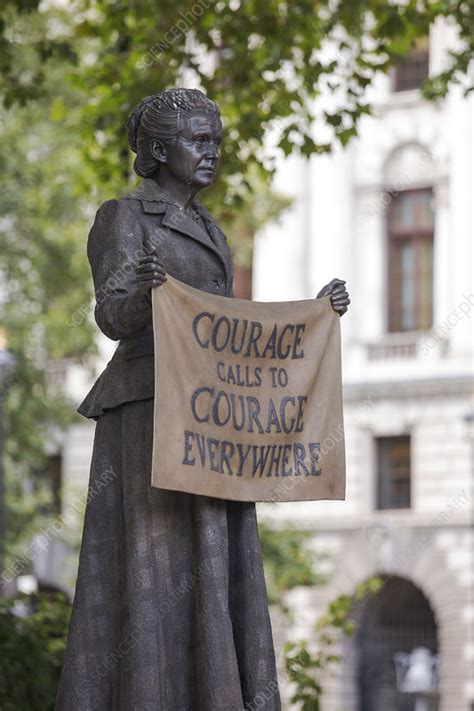 COURAGE
CALLS TO
COURAGE
EVERYWHERE
SCIENCEPHOTOLIBRARY